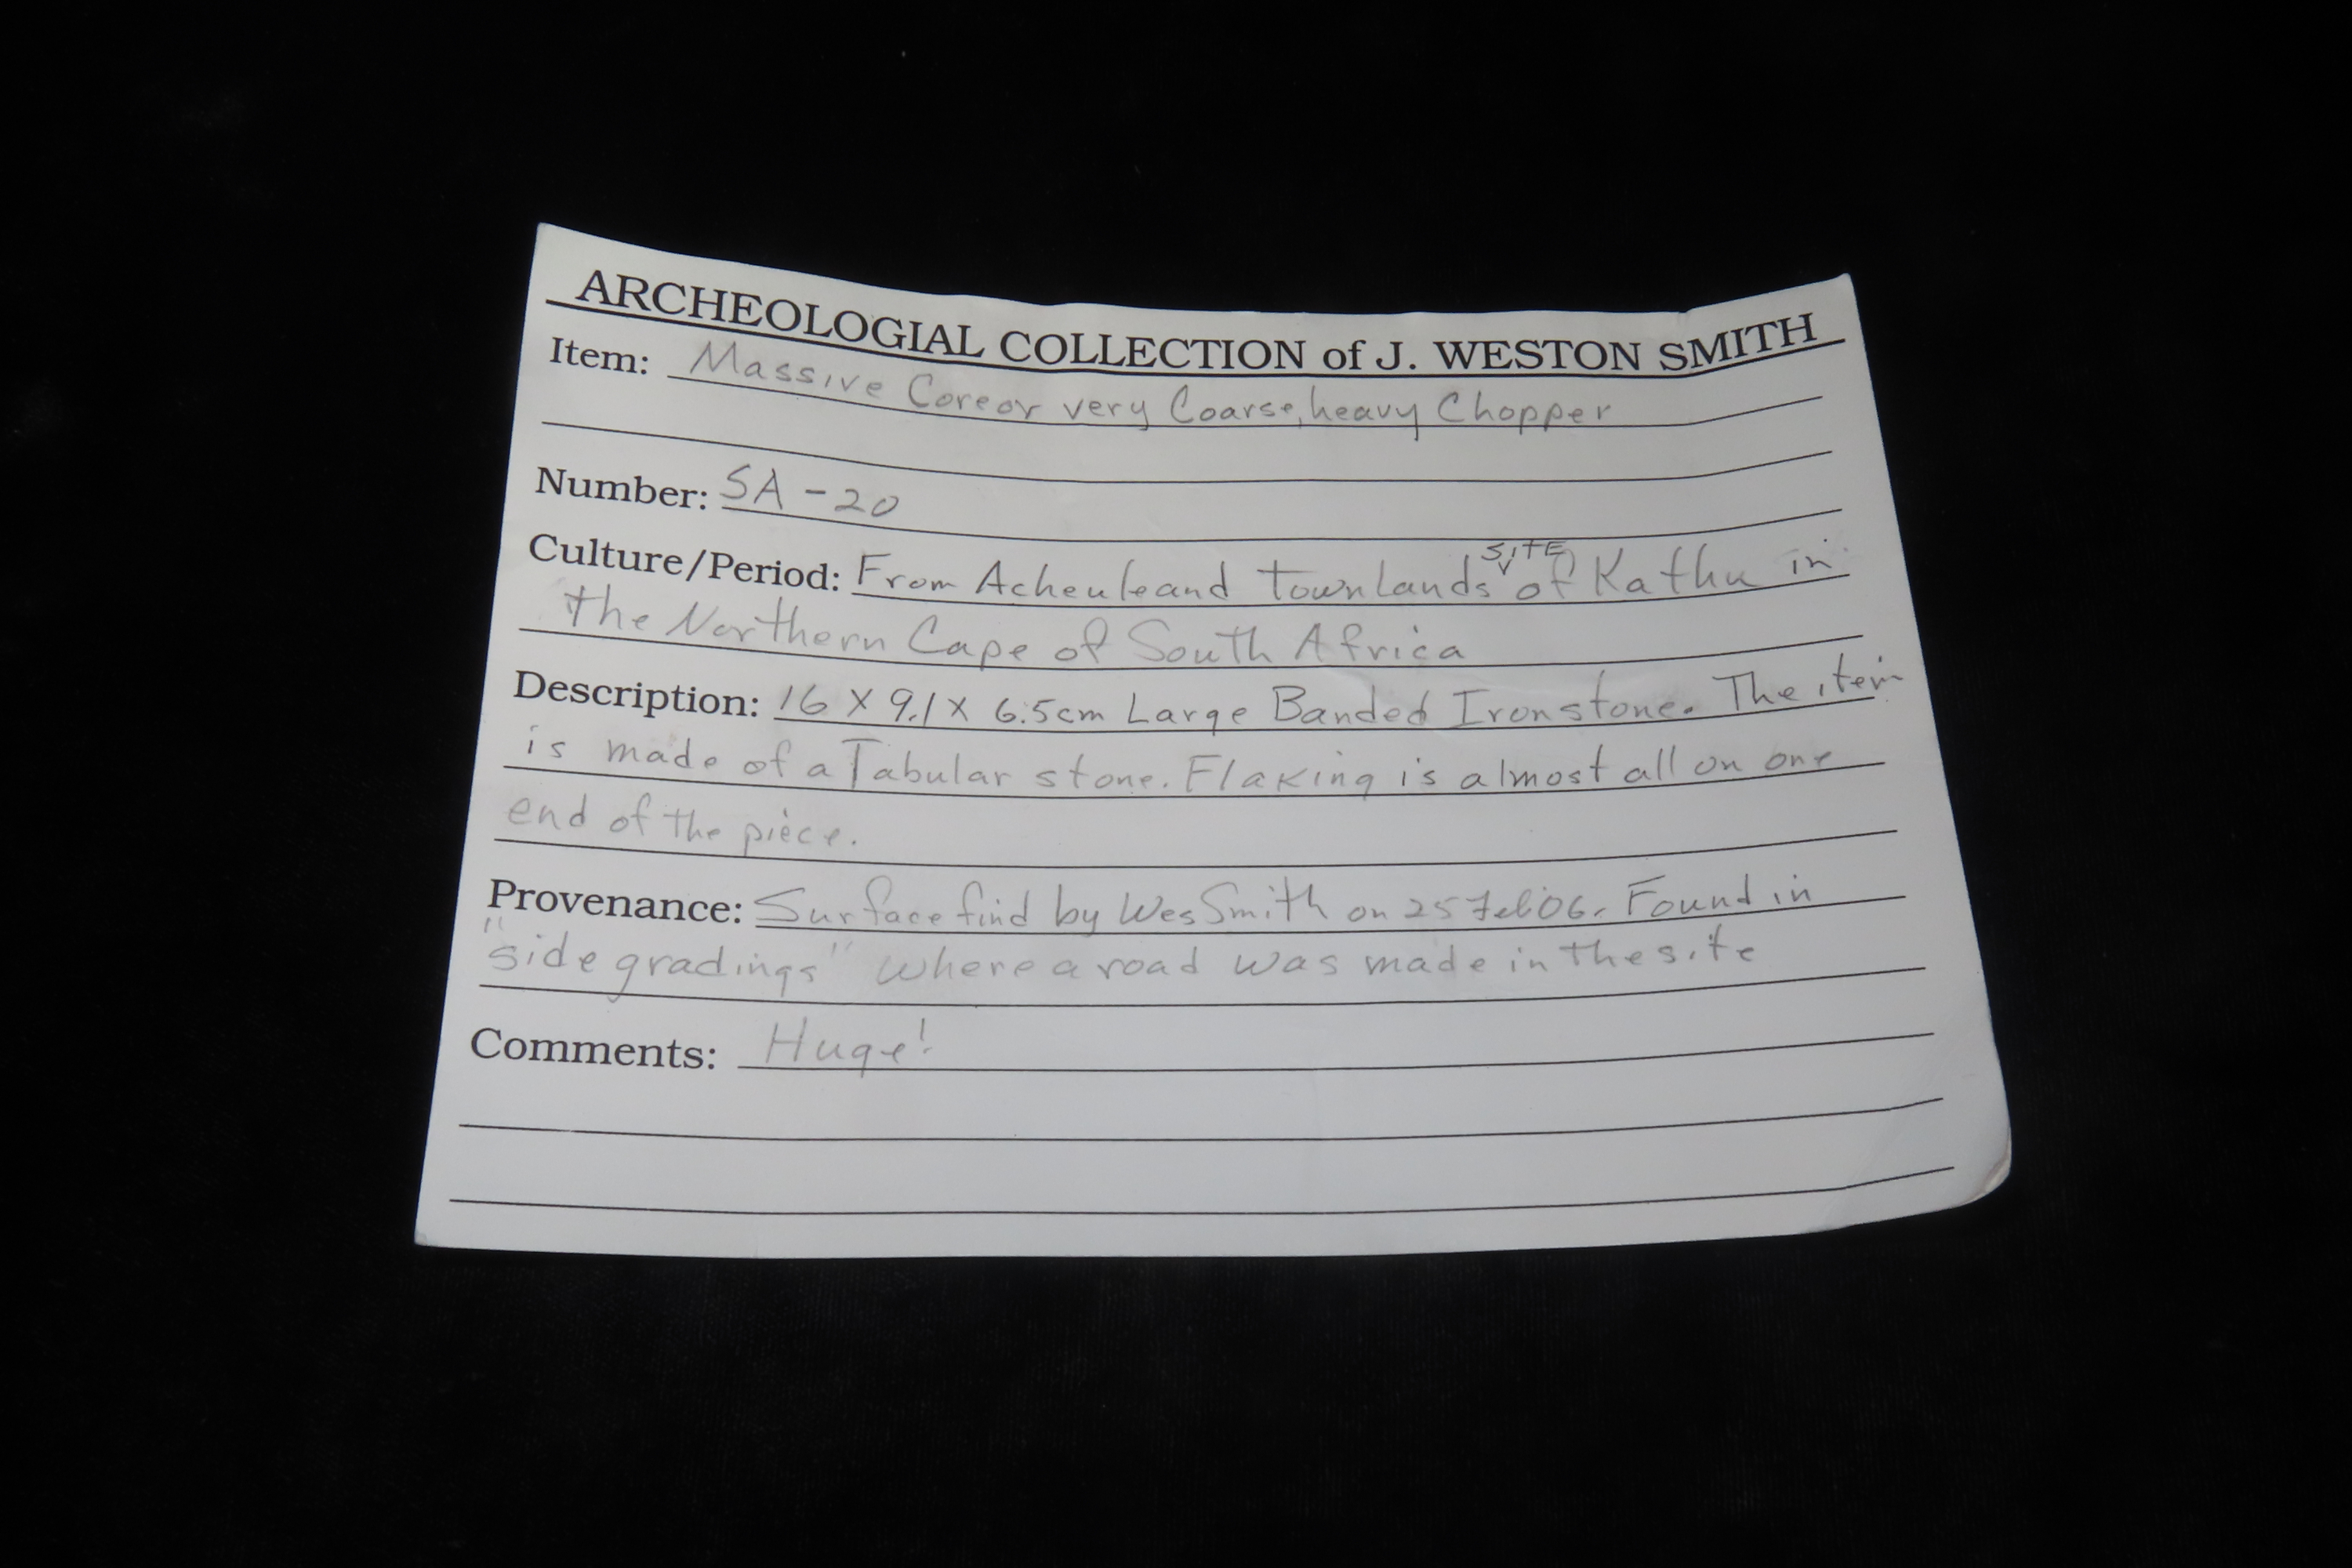 ARCHEOLOGIAL COLLECTION of J. WESTON SMITH
Item: Massive Core or very Coarse, heavy Chopper
Number: SA-20
Culture/Period: From Acheuleand townlands SITE of Kathu in
the Northern Cape of South Africa
Description: 16 X 9.1 X 6.5cm Large Banded Ironstone. The item
is made of a Tabular stone. Flaking is almost all on one
end of the piece.
Provenance: Surface find by Wes Smith on 25 Feb 06. Found in
"side gradings" where a road was made in the site
Comments: Huge!